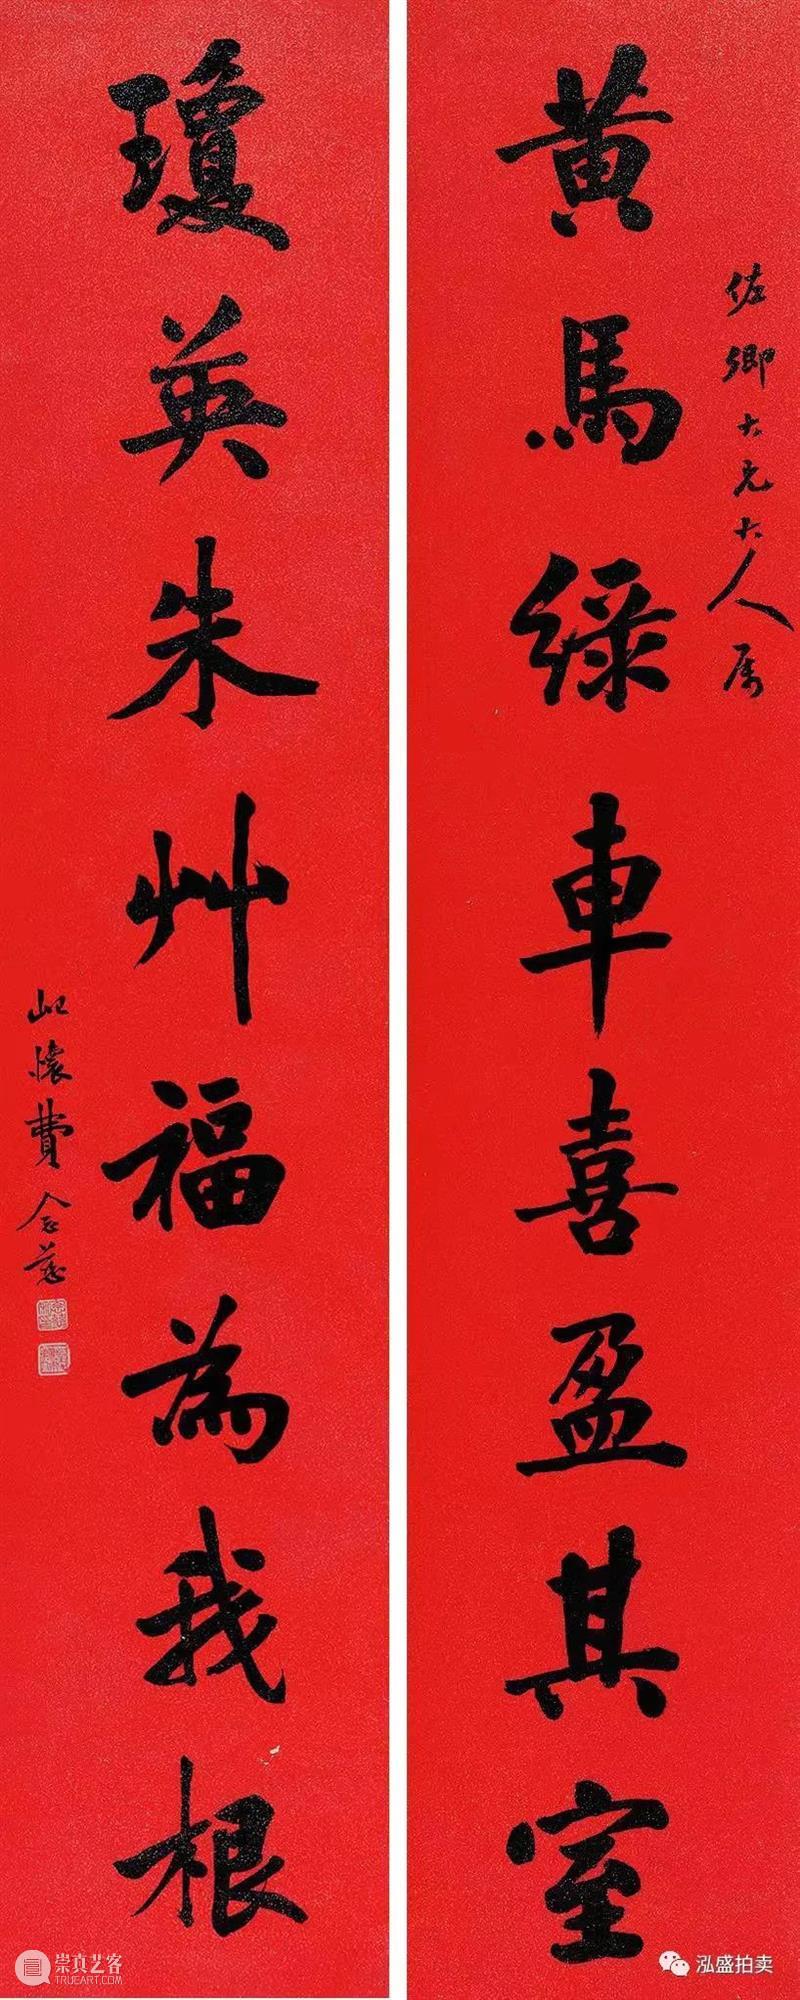 黄馬綠車喜盈其室
佐卿大兄大人属
瓊英朱艸福為我根
屺懷費念慈
崇真艺客
TRUEART.COM
泓盛拍卖